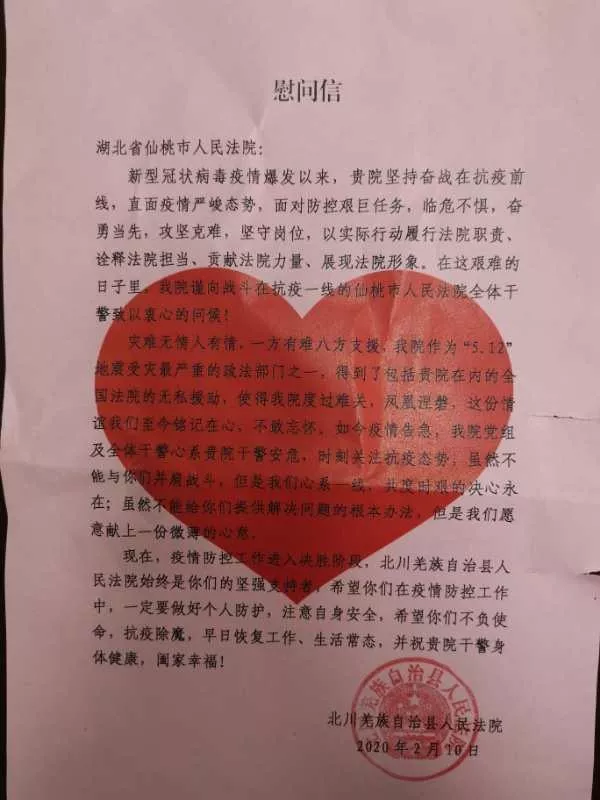 慰问信
湖北省仙桃市人民法院：
新型冠状病毒疫情爆发以来，贵院坚持奋战在抗疫前
线，直面疫情严峻态势，面对防控艰巨任务，临危不惧，奋
勇当先，攻坚克难，坚守岗位，以实际行动履行法院职责、
诠释法院担当、贡献法院力量、展现法院形象。在这艰难的
日子里，我院谨向战斗在抗疫一线的仙桃市人民法院全体干
警致以衷心的问候！
灾难无情人有情，一方有难八方支援，我院作为“5.12”
地震受灾最严重的政法部门之一，得到了包括贵院在内的全
国法院的无私援助，使得我院度过难关，凤凰涅磐，这份情
谊我们至今铭记在心，不敢忘怀。如今疫情告急，我院党组
及全体干警心系贵院干警安危，时刻关注抗疫态势，虽然不
能与你们并肩战斗，但是我们心系一线，共度时艰的决心永
在；虽然不能给你们提供解决问题的根本办法，但是我们愿
意献上一份微薄的心意。
现在，疫情防控工作进入决胜阶段，北川羌族自治县人
民法院始终是你们的坚强支持者，希望你们在疫情防控工作
中，一定要做好个人防护，注意自身安全，希望你们不负使
命，抗疫除魔，早日恢复工作、生活常态，并祝贵院干警身
体健康，阖家幸福！
北川羌族自治县人民法院
2020年2月10日
北川羌族自治县人民法院